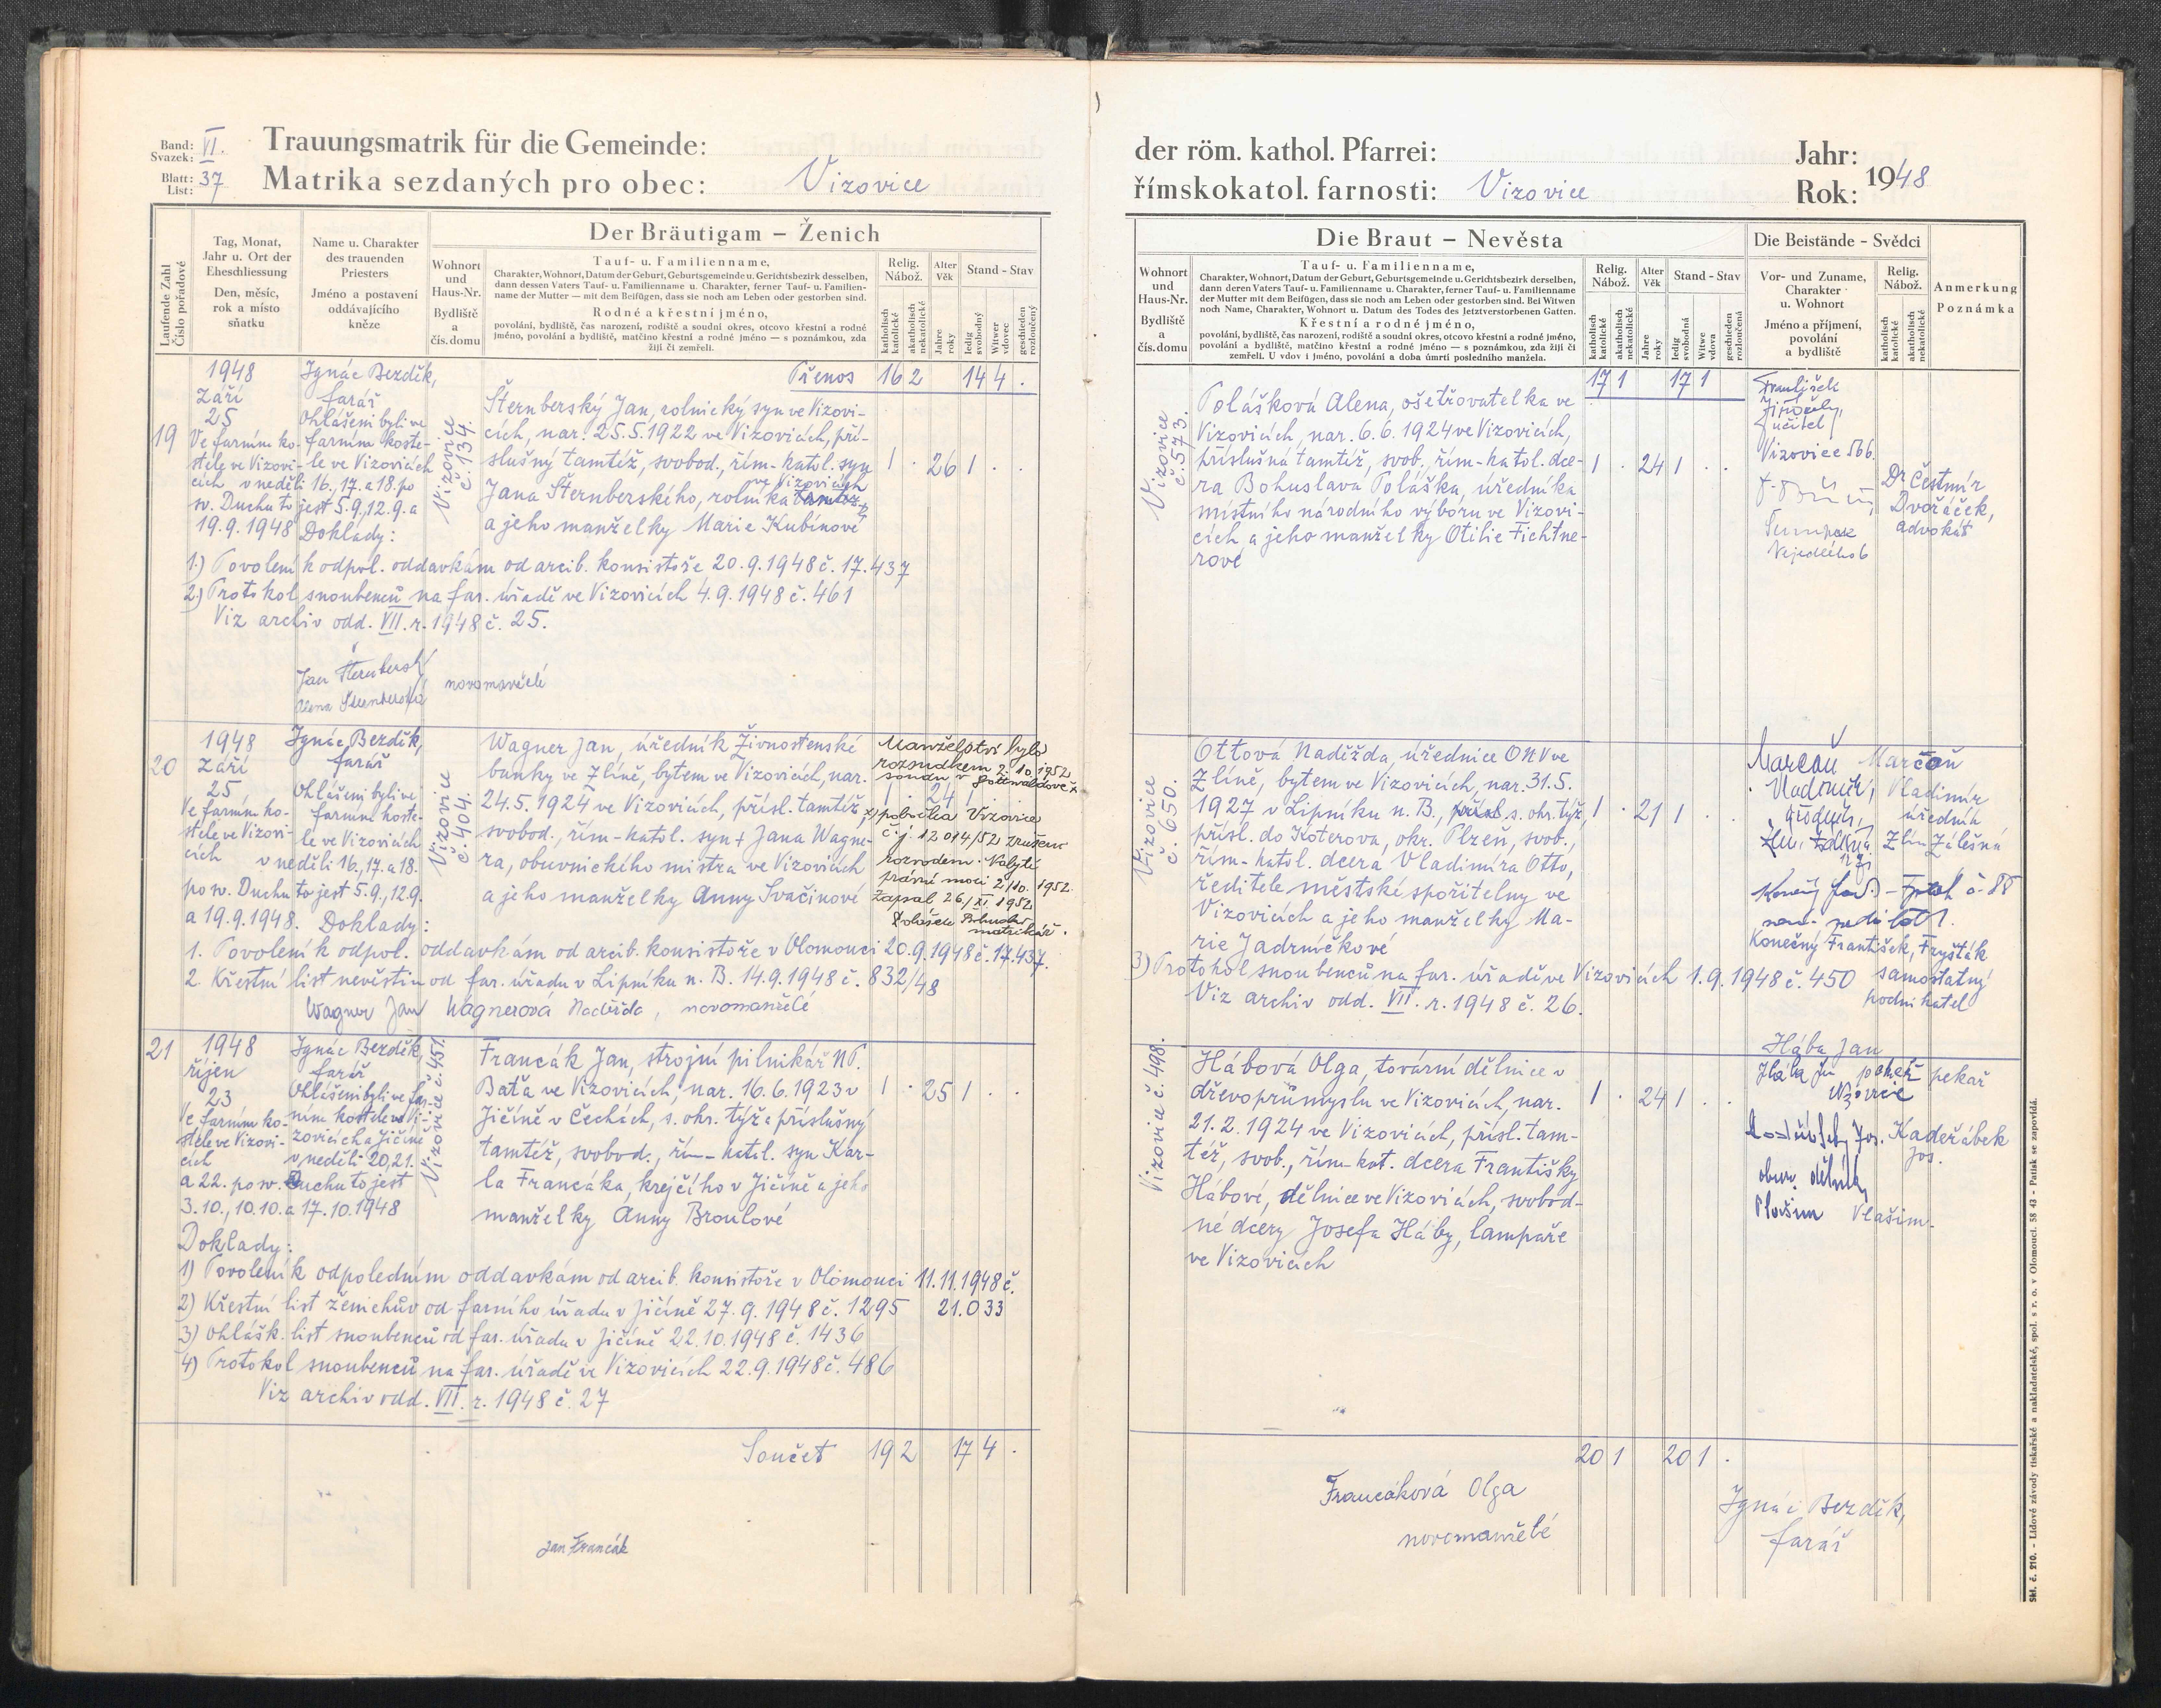 Band: VI.
Svazek:
Blatt: 37
List:
Trauungsmatrik für die Gemeinde:
Matrika sezdaných pro obec: Vizovice
Laufende Zahl
Číslo pořadové
Tag, Monat,
Jahr u. Ort der
Eheschliessung
Den, měsíc,
rok a místo
sňatku
Name u. Charakter
des trauenden
Priesters
Jméno a postavení
oddávajícího
kněze
Der Bräutigam – Ženich
Wohnort
und
Haus-Nr.
Bydliště
a
čís. domu
Tauf- u. Familienname,
Charakter, Wohnort, Datum der Geburt, Geburtsgemeinde u. Gerichtsbezirk desselben,
dann dessen Vaters Tauf- u. Familienname u. Charakter, ferner Tauf- u. Familien-
name der Mutter — mit dem Beifügen, dass sie noch am Leben oder gestorben sind.
Rodné a křestní jméno,
povolání, bydliště, čas narození, rodiště a soudní okres, otcovo křestní a rodné
jméno, povolání a bydliště, matčino křestní a rodné jméno — s poznámkou, zda
žijí či zemřeli.
Relig.
Nábož.
katholisch
katolické
akatholisch
nekatolické
Alter
Věk
Jahre
roky
Stand - Stav
ledig
svobodný
Witwer
vdovec
geschieden
rozloučený
Přenos 16 2 14 4 .
19
1948
Září
25
Ve farním ko-
stele ve Vizovi-
cích
Ignác Bezděk,
farář
Ohlášeni byli ve
farním koste-
le ve Vizovicích
v neděli 16., 17. a 18. po
sv. Duchu to jest 5.9., 12.9. a
19.9.1948 Doklady:
Vizovice
č. 134.
Šternberský Jan, rolnický syn ve Vizovi-
cích, nar. 25.5.1922 ve Vizovicích, pří-
slušný tamtéž, svobod., řím-katol. syn
ve Vizovicích
Jana Šternberského, rolníka tamtéž
a jeho manželky Marie Kubínové
1 . 26 1 . .
1.) Povolení k odpol. oddavkám od arcib. konsistoře 20.9.1948 č. 17.437
2.) Protokol snoubenců na far. úřadě ve Vizovicích 4.9.1948 č. 461
Viz archiv odd. VII. r. 1948 č. 25.
Jan Šternberský
Alena Šternberská
novomanželé
20
1948
Září
25
Ve farním ko-
stele ve Vizovi-
cích
Ignác Bezděk,
farář
Ohlášeni byli ve
farním koste-
le ve Vizovicích
v neděli 16., 17. a 18.
po sv. Duchu to jest 5.9., 12.9.
a 19.9.1948. Doklady:
Vizovice
č. 404.
Wagner Jan, úředník Živnostenské
banky ve Zlíně, bytem ve Vizovicích, nar.
24.5.1924 ve Vizovicích, přísl. tamtéž,
svobod., řím-katol. syn + Jana Wagne-
ra, obuvnického mistra ve Vizovicích
a jeho manželky Anny Svačinové
1 . 24 1 . .
Manželství bylo
rozsudkem 2.10.1952
soudu v Gottwaldově x
x) pobočka Vizovice
č. j. 12 014/52 zrušeno
rozvodem. Nabytí
právní moci 2/10. 1952.
Zapsal 26/XI. 1952
matrikář.
1. Povolení k odpol. oddavkám od arcib. konsistoře v Olomouci 20.9.1948 č. 17.437.
2. Křestní list nevěstin od far. úřadu v Lipníku n. B. 14.9.1948 č. 832/48
Wagner Jan Wagnerová Naděžda, novomanželé
21
1948
říjen
23
Ve farním ko-
stele ve Vizovi-
cích
Ignác Bezděk,
farář
Ohlášeni byli ve far-
ním kostele ve Vi-
zovicích a Jičíně
v neděli 20., 21.
a 22. po sv. Duchu to jest
3.10., 10.10. a 17.10.1948
Vizovice č. 451.
Francák Jan, strojní pilnikář NP.
Baťa ve Vizovicích, nar. 16.6.1923 v
Jičíně v Čechách, s. okr. týž a příslušný
tamtéž, svobod., řím-katol. syn Kar-
la Francáka, krejčího v Jičíně a jeho
manželky Anny Broulové
1 . 25 1 . .
Doklady:
1) Povolení k odpoledním oddavkám od arcib. konsistoře v Olomouci 11.11.1948 č.
21.033
2) Křestní list ženichův od farního úřadu v Jičíně 27.9.1948 č. 1295
3) Ohlášk. list snoubenců od far. úřadu v Jičíně 22.10.1948 č. 1436
4) Protokol snoubenců na far. úřadě ve Vizovicích 22.9.1948 č. 486
Viz archiv odd. VII. r. 1948 č. 27
Součet 19 2 17 4 .
Jan Francák
der röm. kathol. Pfarrei:
římskokatol. farnosti: Vizovice
Jahr:
Rok: 1948
Die Braut – Nevěsta
Wohnort
und
Haus-Nr.
Bydliště
a
čís. domu
Tauf- u. Familienname,
Charakter, Wohnort, Datum der Geburt, Geburtsgemeinde u. Gerichtsbezirk derselben,
dann deren Vaters Tauf- u. Familienname u. Charakter, ferner Tauf- u. Familienname
der Mutter mit dem Beifügen, dass sie noch am Leben oder gestorben sind. Bei Witwen
noch Name, Charakter, Wohnort u. Datum des Todes des Jetztverstorbenen Gatten.
Křestní a rodné jméno,
povolání, bydliště, čas narození, rodiště a soudní okres, otcovo křestní a rodné jméno,
povolání a bydliště, matčino křestní a rodné jméno — s poznámkou, zda žijí či
zemřeli. U vdov i jméno, povolání a doba úmrtí posledního manžela.
Relig.
Nábož.
katholisch
katolické
akatholisch
nekatolické
Alter
Věk
Jahre
roky
Stand - Stav
ledig
svobodná
Witwe
vdova
geschieden
rozloučená
Die Beistände - Svědci
Vor- und Zuname,
Charakter
u. Wohnort
Jméno a příjmení,
povolání
a bydliště
Relig.
Nábož.
katholisch
katolické
akatholisch
nekatolické
Anmerkung
Poznámka
17 1 17 1
Vizovice
č. 573.
Polášková Alena, ošetřovatelka ve
Vizovicích, nar. 6.6.1924 ve Vizovicích,
příslušná tamtéž, svob., řím-katol. dce-
ra Bohuslava Poláška, úředníka
místního národního výboru ve Vizovi-
cích a jeho manželky Otilie Fichtne-
rové
1 . 24 1 . .
František
učitel
Vizovice 566.
Dr Čestmír
Dvořáček,
advokát
Vizovice
č. 650.
Ottová Naděžda, úřednice ONV ve
Zlíně, bytem ve Vizovicích, nar. 31.5.
1927 v Lipníku n. B., s. okr. týž,
přísl. do Koterova, okr. Plzeň, svob.,
řím-katol. dcera Vladimíra Otto,
ředitele městské spořitelny ve
Vizovicích a jeho manželky Ma-
rie Jadrníčkové
1 . 21 1 . .
Marcoň Marcoň
Vladimír, Vladimír
úředník, úředník
Zlín Zálešná
Konečný František, Fryšták
samostatný
podnikatel
3) Protokol snoubenců na far. úřadě ve Vizovicích 1.9.1948 č. 450
Viz archiv odd. VII. r. 1948 č. 26.
Vizovice č. 498.
Hábová Olga, tovární dělnice v
dřevoprůmyslu ve Vizovicích, nar.
21.2.1924 ve Vizovicích, přísl. tam-
též, svob., řím-kat. dcera Františky
Hábové, dělnice ve Vizovicích, svobod-
né dcery Josefa Háby, lampaře
ve Vizovicích
1 . 24 1 . .
Hába Jan
Hába Jan pekař pekař
Vizovice
Jos. Kadeřábek
Jos.
obuv. dělník
Vlašim Vlašim.
20 1 20 1 .
Francáková Olga
novomanželé
Ignác Bezděk,
farář
Skl. č. 210. - Lidové závody tiskařské a nakladatelské, spol. s r. o. v Olomouci. 58 43 - Patisk se zapovídá.